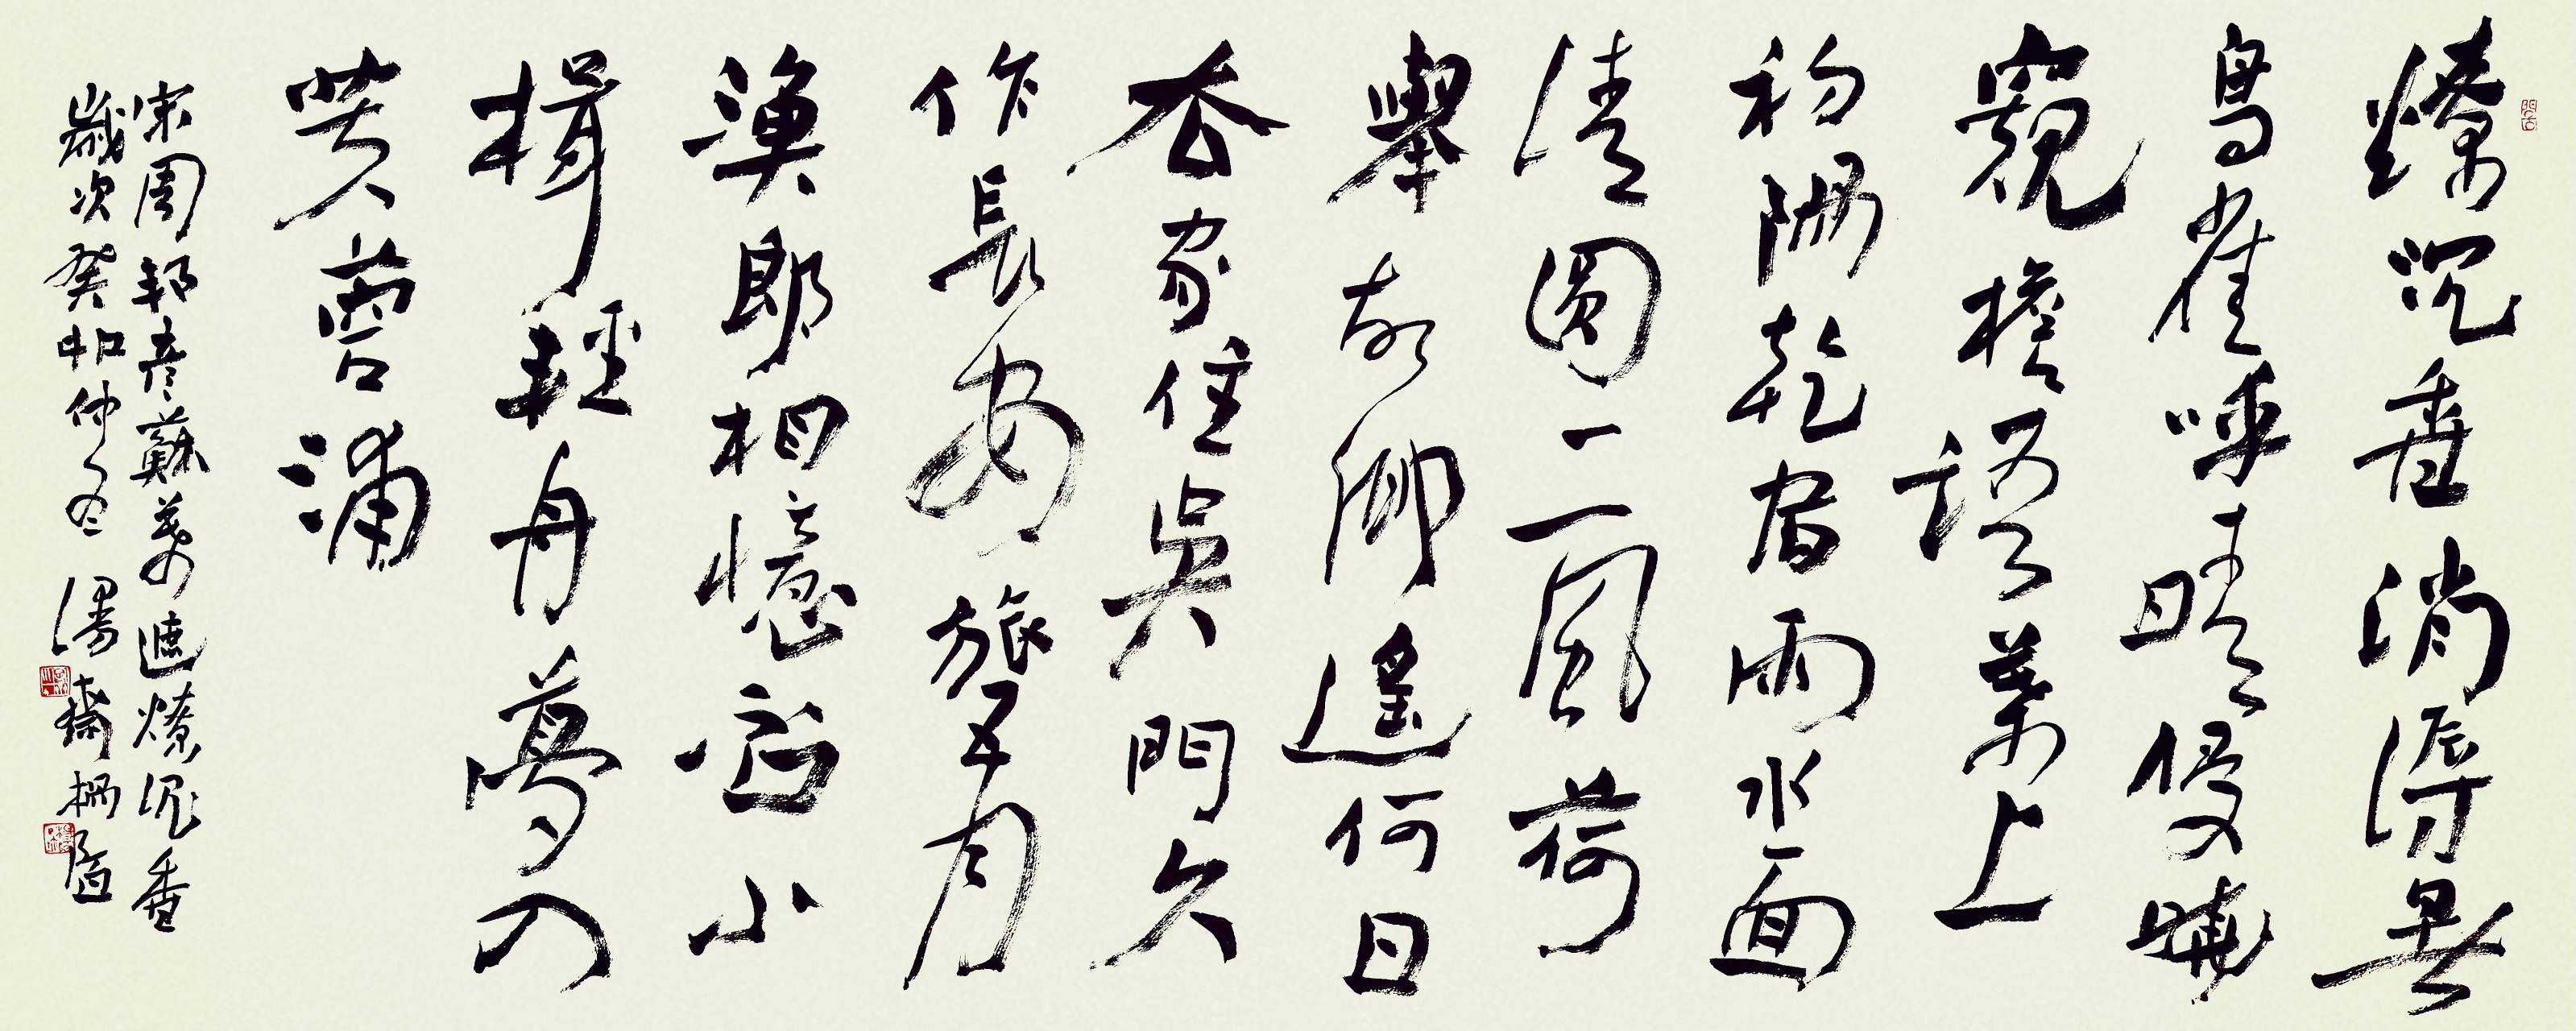 燎沉香消溽暑
鳥雀呼晴侵曉
窺檐語葉上
初陽乾宿雨水面
清圓一一風荷
舉故鄉遙何日
去家住吳門久
作長安旅五月
漁郎相憶否小
楫輕舟夢入
芙蓉浦
宋周邦彥蘇幕遮燎沉香
歲次癸卯仲冬